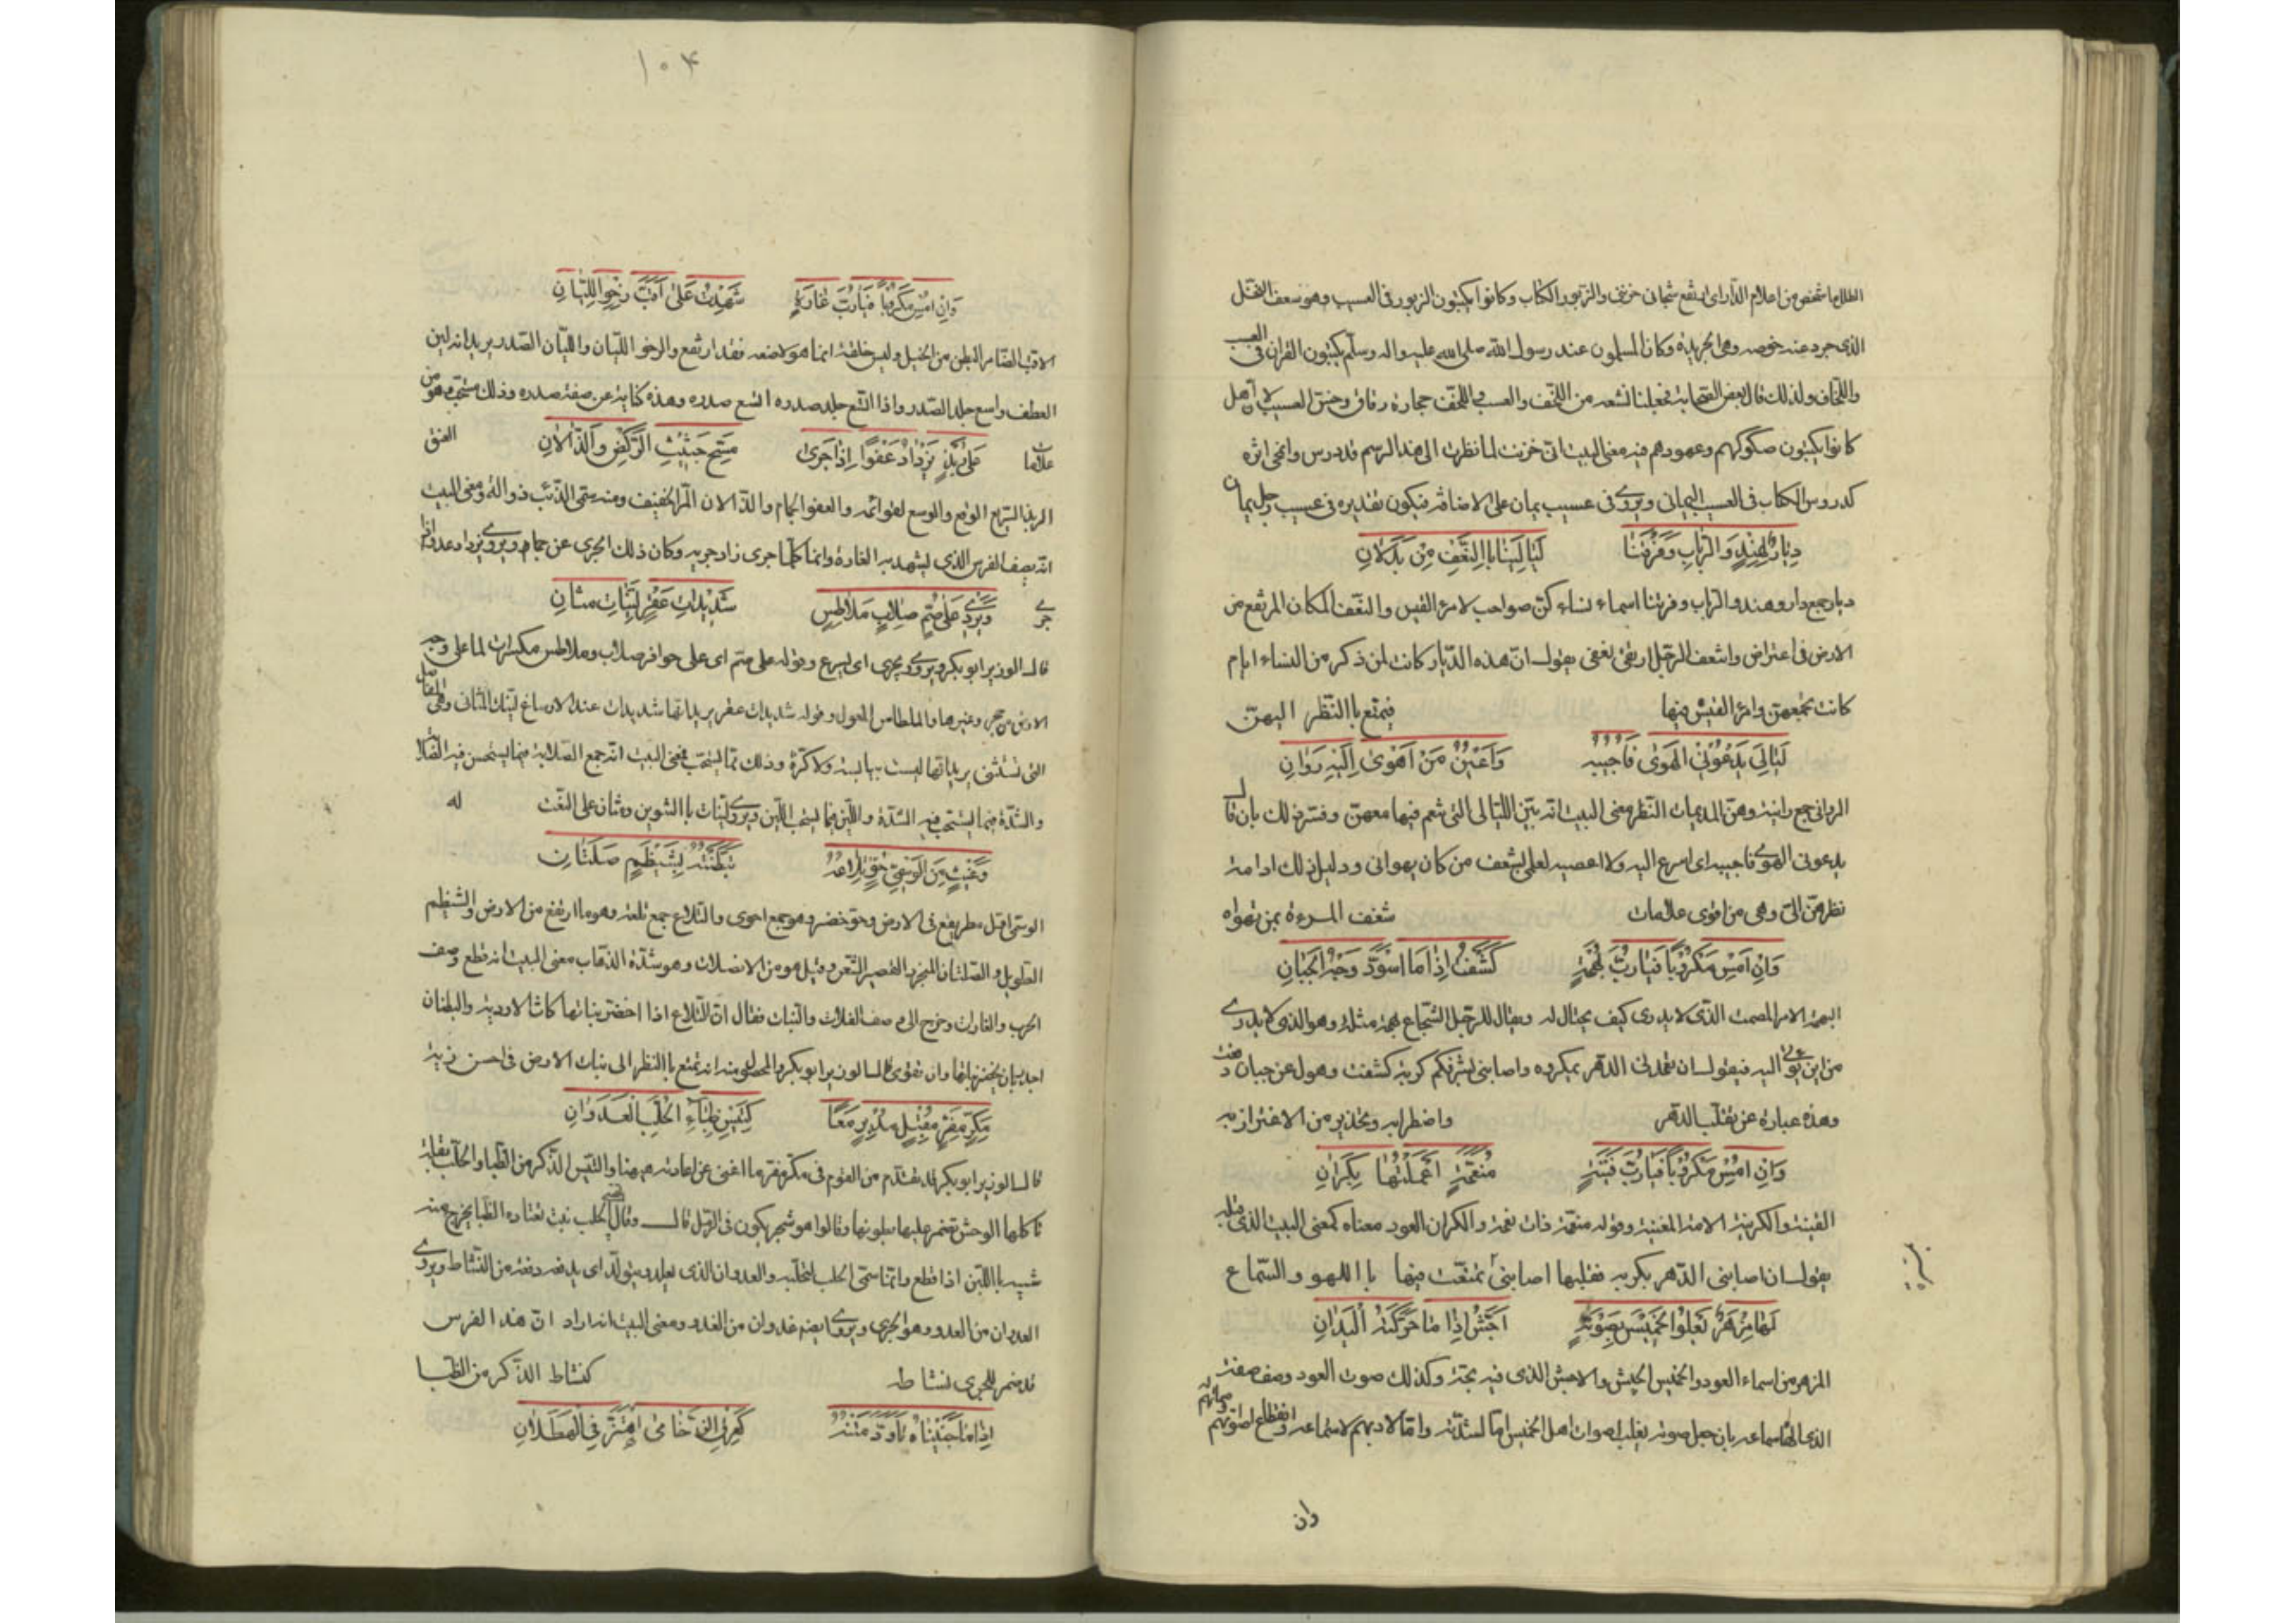 الطلل ما شخص من اعلام الدار اى ارتفع شجانى حزننى والزبور الكتاب وكانوا يكتبون الزبور فى العسيب وهو سعف النخل
الذى جرد عنه خوصه وهى الجريدة وكان المسلمون عند رسول الله صلى الله عليه واله وسلم يكتبون القران فى العسب
واللخاف ولذلك قال بعض الصحابة فجعلنا نتتبعه من اللخف والعسب واللخف حجارة رقاق وخص العسيب لان اهل
كانوا يكتبون صكوكهم وعهودهم فيه معنى البيت انى حزنت لما نظرت الى هذا الرسم قد درس وامحى اثره
كدروس الكتاب فى العسيب اليمانى ويروى فى عسيب يمان على الاضافة فيكون تقديره فى عسيب رجل يمان
دِيارٌ لِهِندٍ وَالرَّبابِ وَفَرْتَنا لَيالِيَنا بِالنَّعْفِ مِن بَدَلانِ
ديار جمع دار وهند والرباب وفرتنا اسماء نساء كن صواحب لامرئ القيس والنعف المكان المرتفع من
الارض فى اعتراض وانتعف الرجل ارتقى نعفى يقول ان هذه الديار كانت لمن ذكر من النساء ايام
كانت تجمعهن وامرؤ القيس فيها فيمتع باالنظر اليهن
لَيالِيَ يَدْعُونِي الهَوى فَاُجيبُهُ وَاَعْيُنُ مَنْ اَهْوى اِلَيَّ رَوانِ
الروانى جمع رانية وهن المديمات النظر معنى البيت انه بين الليالى التى تنعم فيها معهن وفسر ذلك بان قال
يدعونى الهوى فاجيبه اى اسرع اليه ولا اعصيه لعلمى بشغف من كان يهوانى ودليل ذلك ادامة
نظرهن الى وهى من اقوى علامات شغف المرءة بمن تهواه
وَاِنْ اُمْسِ مَكْرُوبًا فَيارُبَّ بُهْمَةٍ كَشَفْتُ اِذا مَا اسْوَدَّ وَجْهُ الجَبانِ
البهمة الامر المصمت الذى لا يدرى كيف يحتال له ويقال للرجل الشجاع بهمة مثله وهو الذى لا يدرى
من اين يؤتى اليه فيقول ان تعمدنى الدهر بمكروه واصابنى بشر فكم كربة كشفت وهول عن جبان دفعت
وهذه عبارة عن تقلب الدهر واضطرابه وتحذير من الاغترار به
وَاِنْ اُمْسِ مَكْرُوبًا فَيارُبَّ قَيْنَةٍ مُنَعَّمَةٍ اَعْمَلْتُها بِكِرانِ
القينة والكرينة الامة المغنية وقوله منغمة ذات نغمة والكران العود معناه كمعنى البيت الذى قبله
يقول ان اصابنى الدهر بكربة فقلبها اصابنى تمتعت فيها باللهو والسماع
لَها مِزْهَرٌ يَعْلُو الخَميسَ بِصَوْتِهِ اَجَشُّ اِذا ما حَرَّكَتْهُ اليَدانِ
المزهر من اسماء العود والخميس الجيش والاجش الذى فيه بحة وكذلك صوت العود وصف صفة
وان
۱۰۴
وَاِنْ اُمْسِ مَكْرُوبًا فَيارُبَّ غارَةٍ شَهِدْتُ عَلى اَقَبَّ رِخْوِ اللَّبانِ
الاقب الضامر البطن من الخيل وليس خلقة انما هو لاضمه فقد ارتفع والرخو اللبان واللبان الصدر يريد انه لين
العطف واسع جلد الصدر واذا اتسع جلد صدره اتسع صدره وهذه كناية عن صفة صدره وذلك مستحب وهو من
علامات العتق
عَلى رَبِذٍ يَزْدادُ عَفْوًا اِذا جَرى مِسَحٍّ حَثيثِ الرَّكْضِ وَالذَّأَلانِ
الربذ السريع الوقع والوسع لقوائمه والعفو الجمام والذالان المر الخفيف ومنه سمى الذئب ذوالة ومعنى البيت
انه يصف الفرس الذى يشهد به الغارة وانما كلما جرى زاد جريه وكان ذلك الجرى عن جمام ويروى يزداد عدوا اذا
جرى
وَيُرْدي عَلى صُمٍّ صِلابٍ مَلاطِسٍ شَديداتِ عَقْرٍ لَيِّناتِ مِثانِ
قال الوزير ابو بكر ويروى ويجرى اى يسرع وقوله على صم اى على حوافر صلاب وملاطس مكسرات لما على وجه
الارض من حجر وغيرها والملطاس المعول وقوله شديدات عقر يريد انها شديدات عند الارساغ لينات المثانى وهى المفاصل
التى تنثنى يريد انها ليست بيابسة ولا كزة وذلك مما يستحب فمعنى البيت انه جمع الصلابة فيما يستحسن فيه الصلابة
والشدة فيما يستحب فيه الشدة واللين فيما يستحب اللين ويروى لينات باالتنوين ومثان على النعت له
وَغَيْثٍ مِنَ الوَسْمِيِّ حُوٍّ تِلاعُهُ تَبَطَّنْتُهُ بِشَيْظَمٍ صَلَتانِ
الوسمى اول مطر يقع فى الارض وحو خضر وهو جمع احوى والتلاع جمع تلعة وهو ما ارتفع من الارض والشيظم
الطويل والصلتان المنجرد القصير الشعر وقيل هو من الانصلات وهو شدة الذهاب معنى البيت انه قطع وصف
الحرب والغارات وخرج الى وصف الفلات والنبات فقال ان التلاع اذا اخضر نباتها كانت الاودية والبطنان
مِكَرٍّ مِفَرٍّ مُقْبِلٍ مُدْبِرٍ مَعًا كَتَيْسِ ظِباءِ الحُلَّبِ العَدَوانِ
قال الوزير ابو بكر قد تقدم من القول فى مكر مفر ما اغنى عن اعادته هيهنا والتيس الذكر من الظبا والحلب بقلة
تاكلها الوحش تضمر عليها بطونها وقالوا هو شجر يكون فى الرمل قال وقال الحلب نبت تعتاده الظبا يخرج منه
شبيه باللبن اذا قطع وانما سمى الحلب لتحلبه والعدوان الذى
العدوان من العدو وهو الجرى ويروى ايضم غدوان من الغدو ومعنى البيت انه اراد ان هذا الفرس
قد ضمر للجرى نشاطه كنشاط الذكر من الظبا
اِذا ما جَنَبْناهُ تَأَوَّدَ مَتْنُهُ كَعِرْقِ الرُّخامى اهْتَزَّ فِي الهَطَلانِ